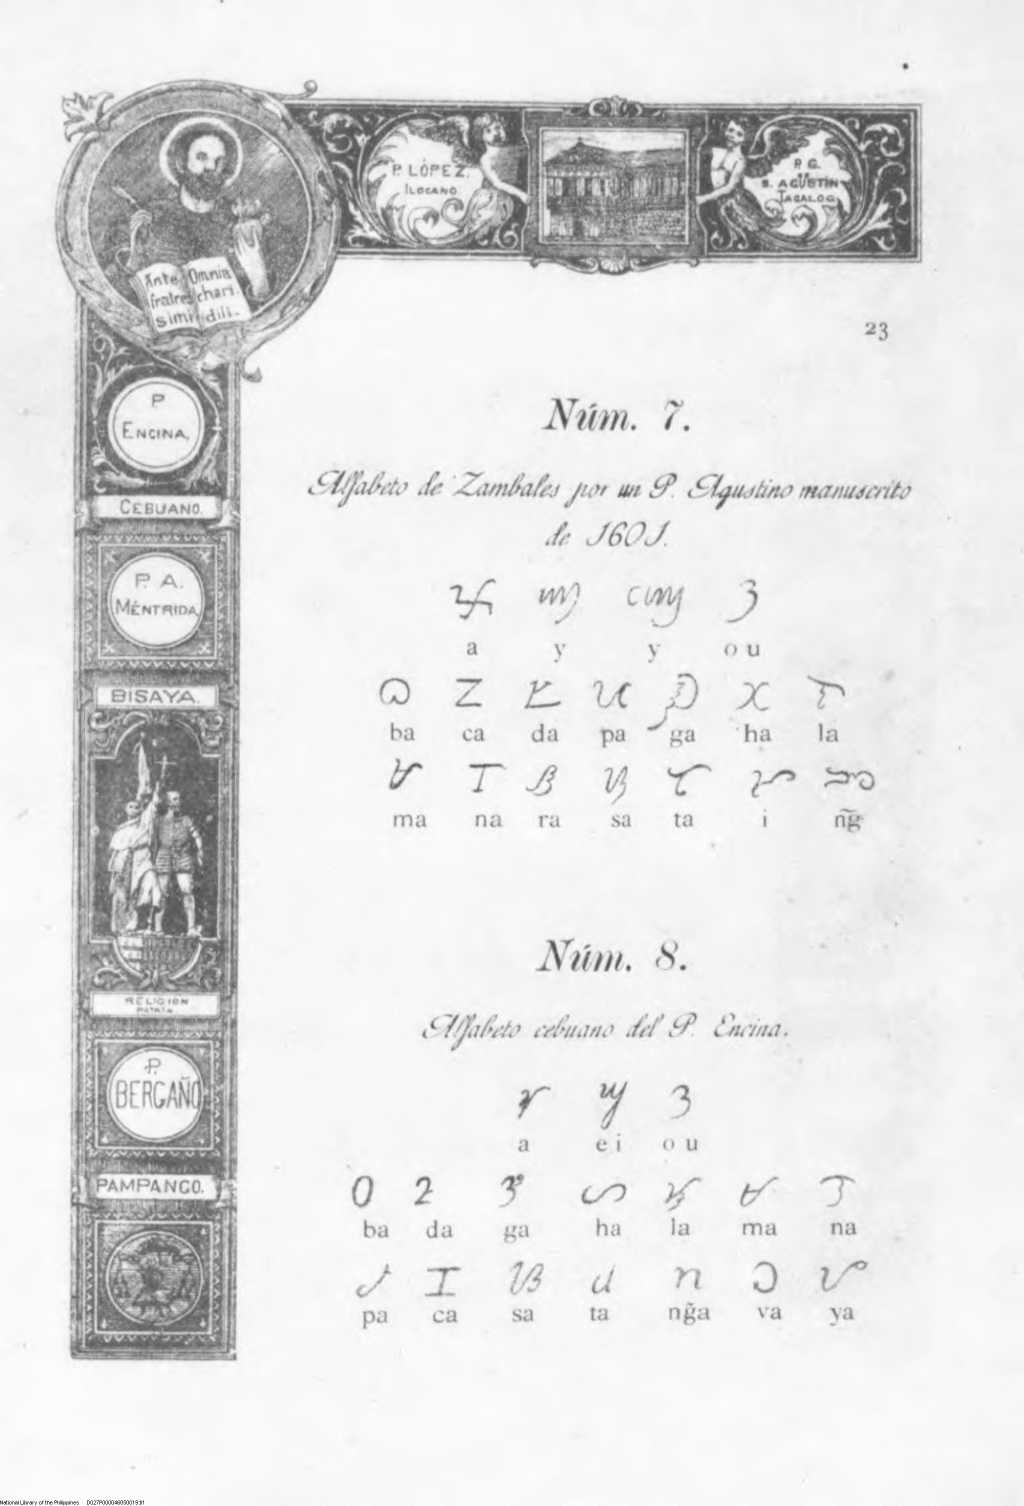 P. LÓPEZ.
ILOCANO
P. G.
DE
S. AGUSTIN
TAGALOG
Ante Omnia
fratres chari
simi dili-
23
P
ENCINA,
CEBUANO.
P. A.
MÉNTRIDA
BISAYA.
RELIGION
PATRIA
P.
BERGAÑO
PAMPANGO.
Núm. 7.
Alfabeto de Zambales por un P. Agustino manuscrito
de 1601.
a y y o u
ba ca da pa ga ha la
ma na ra sa ta i ñg̃
Núm. 8.
Alfabeto cebuano del P. Encina.
a e i o u
ba da ga ha la ma na
pa ca sa ta ng̃a va ya
National Library of the Philippines